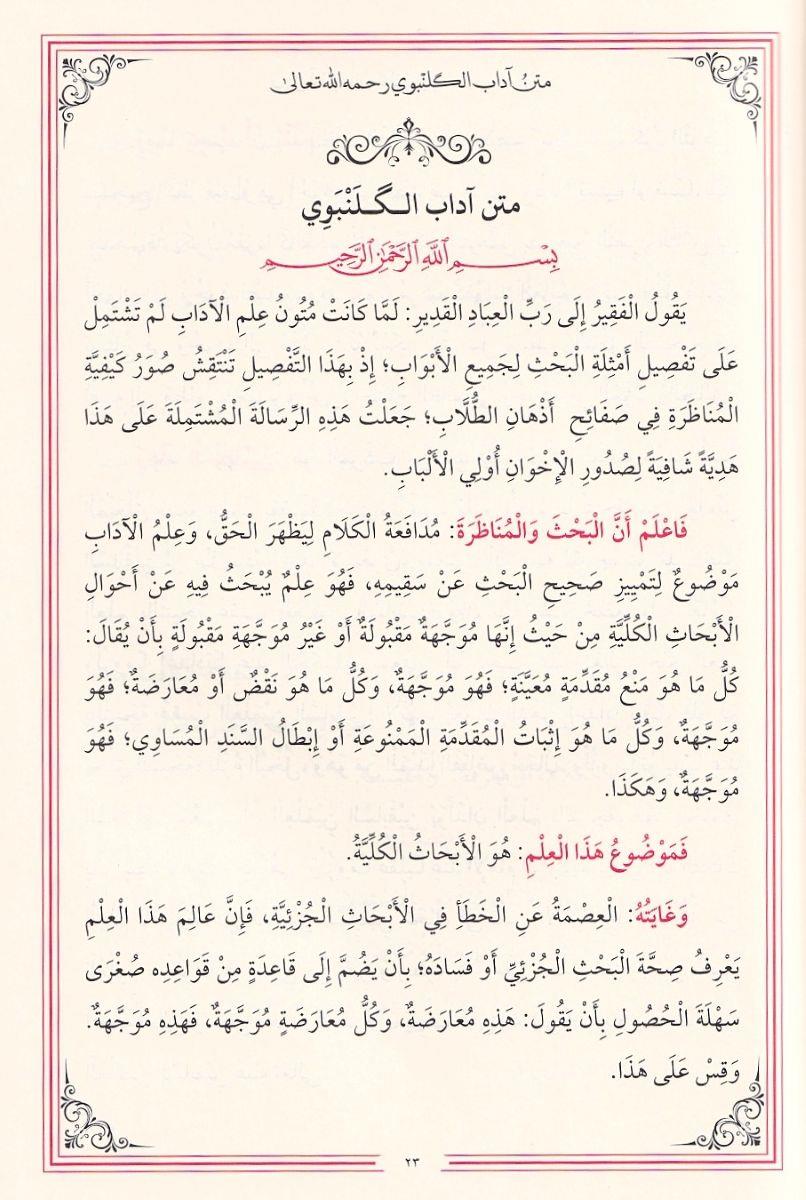 متن آداب الگلنبوي رحمه الله تعالى
متن آداب الـگـلَنْبَوِي
بِسْمِ اللَّهِ الرَّحْمَنِ الرَّحِيمِ
يَقُولُ الْفَقِيرُ إِلَى رَبِّ الْعِبَادِ الْقَدِيرِ: لَمَّا كَانَتْ مُتُونُ عِلْمِ الْآدَابِ لَمْ تَشْتَمِلْ
عَلَى تَفْصِيلِ أَمْثِلَةِ الْبَحْثِ لِجَمِيعِ الْأَبْوَابِ؛ إِذْ بِهَذَا التَّفْصِيلِ تَنْتَقِشُ صُوَرُ كَيْفِيَّةِ
الْمُنَاظَرَةِ فِي صَفَائِحِ أَذْهَانِ الطُّلَّابِ؛ جَعَلْتُ هَذِهِ الرِّسَالَةَ الْمُشْتَمِلَةَ عَلَى هَذَا
هَدِيَّةً شَافِيَةً لِصُدُورِ الْإِخْوَانِ أُوْلِي الْأَلْبَابِ.
فَاعْلَمْ أَنَّ الْبَحْثَ وَالْمُنَاظَرَةَ: مُدَافَعَةُ الْكَلَامِ لِيَظْهَرَ الْحَقُّ، وَعِلْمُ الْآدَابِ
مَوْضُوعٌ لِتَمْيِيزِ صَحِيحِ الْبَحْثِ عَنْ سَقِيمِهِ، فَهُوَ عِلْمٌ يُبْحَثُ فِيهِ عَنْ أَحْوَالِ
الْأَبْحَاثِ الْكُلِّيَّةِ مِنْ حَيْثُ إِنَّهَا مُوَجَّهَةٌ مَقْبُولَةٌ أَوْ غَيْرُ مُوَجَّهَةِ مَقْبُولَةٍ بِأَنْ يُقَالَ:
كُلُّ مَا هُوَ مَنْعُ مُقَدِّمَةٍ مُعَيَّنَةٍ؛ فَهُوَ مُوَجَّهَةٌ، وَكُلُّ مَا هُوَ نَقْضٌ أَوْ مُعَارَضَةٌ؛ فَهُوَ
مُوَجَّهَةٌ، وَكُلُّ مَا هُوَ إِثْبَاتُ الْمُقَدِّمَةِ الْمَمْنُوعَةِ أَوْ إِبْطَالُ السَّنَدِ الْمُسَاوِي؛ فَهُوَ
مُوَجَّهَةٌ، وَهَكَذَا.
فَمَوْضُوعُ هَذَا الْعِلْمِ: هُوَ الْأَبْحَاثُ الْكُلِّيَّةُ.
وَغَايَتُهُ: الْعِصْمَةُ عَنِ الْخَطَأِ فِي الْأَبْحَاثِ الْجُزْئِيَّةِ، فَإِنَّ عَالِمَ هَذَا الْعِلْمِ
يَعْرِفُ صِحَّةَ الْبَحْثِ الْجُزْئِيِّ أَوْ فَسَادَهُ؛ بِأَنْ يَضُمَّ إِلَى قَاعِدَةٍ مِنْ قَوَاعِدِهِ صُغْرَى
سَهْلَةَ الْحُصُولِ بِأَنْ يَقُولَ: هَذِهِ مُعَارَضَةٌ، وَكُلُّ مُعَارَضَةٍ مُوَجَّهَةٌ، فَهَذِهِ مُوَجَّهَةٌ.
وَقِسْ عَلَى هَذَا.
٢٣